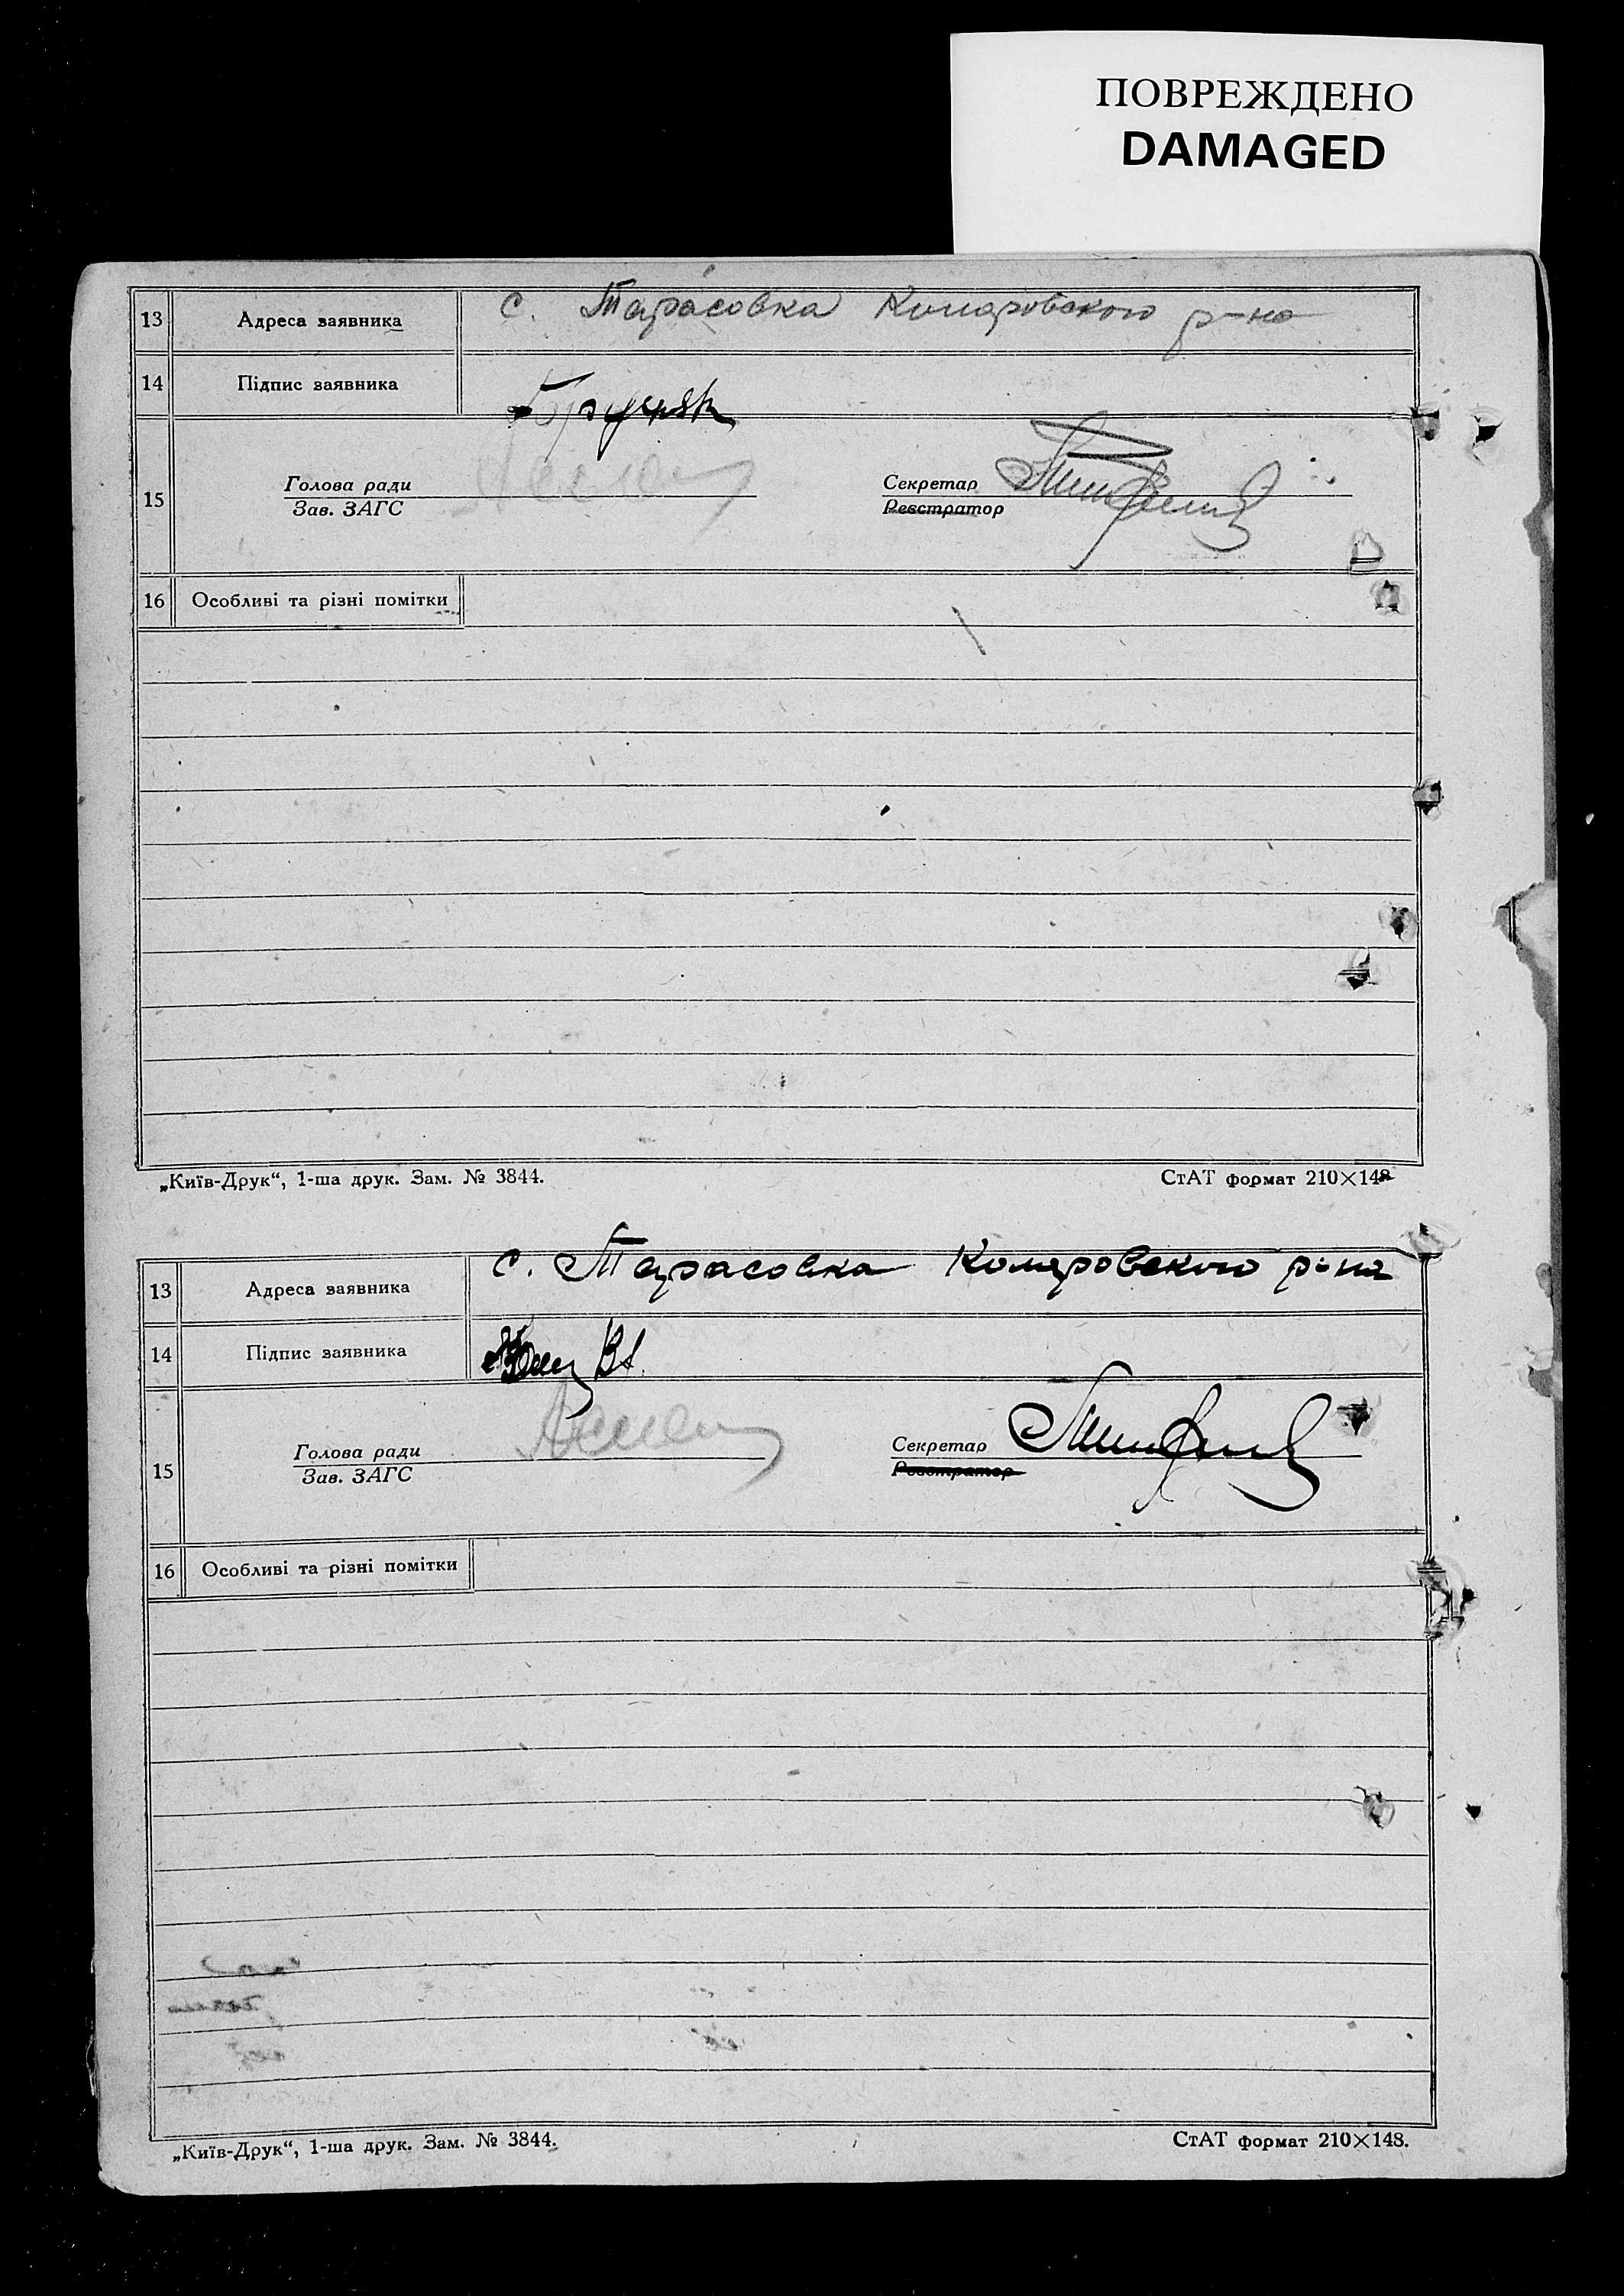 ПОВРЕЖДЕНО
DAMAGED
13 Адреса заявника с. Тарасовка Комаровского р-на
14 Підпис заявника
15 Голова ради Секретар
Зав. ЗАГС Реєстратор
16 Особливі та різні помітки
„Київ-Друк“, 1-ша друк. Зам. № 3844. СтАТ формат 210×148
13 Адреса заявника с. Тарасовка Комаровского р-на
14 Підпис заявника
15 Голова ради Секретар
Зав. ЗАГС Реєстратор
16 Особливі та різні помітки
„Київ-Друк“, 1-ша друк. Зам. № 3844. СтАТ формат 210×148.